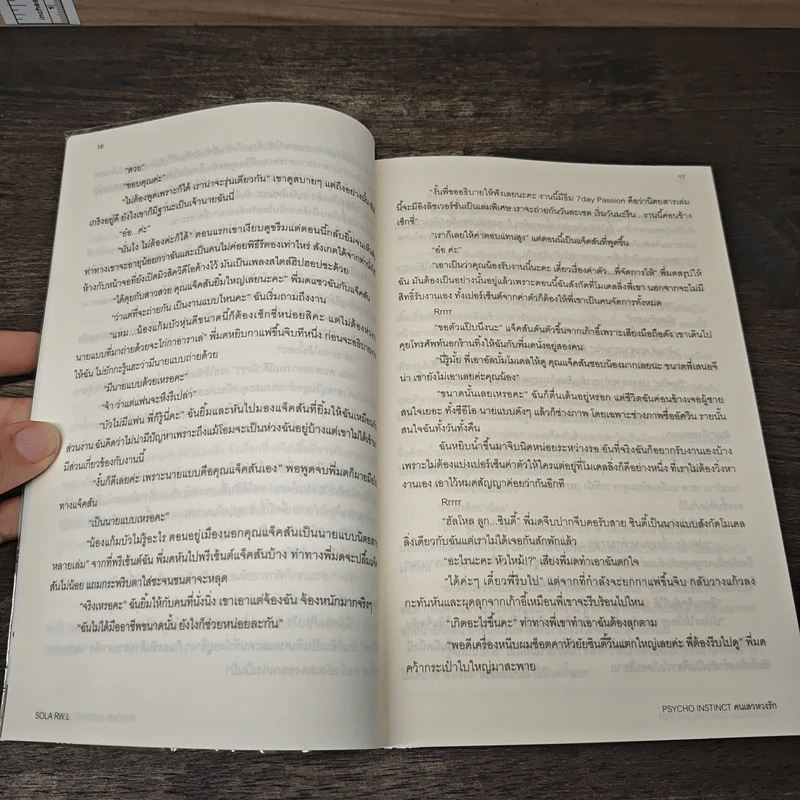 16
"สวย"
"ขอบคุณค่ะ"
"ไม่ต้องพูดเพราะก็ได้ เราน่าจะรุ่นเดียวกัน" เขาดูสบายๆ แต่ถึงอย่างนั้น
เกร็งอยู่ดี ยังไงเขาก็มีฐานะเป็นเจ้านายฉันนี่
"อ๋อ...ค่ะ"
"นั่นไง ไม่ต้องค่ะก็ได้" ตอนแรกเขาเงียบดูขรึมแต่ตอนนี้กลับยิ้มจน
ท่าทางเขาจะอายุน้อยกว่าฉันและเป็นคนไม่ค่อยพิธีรีตองเท่าไหร่ สังเกตได้จากท่า
ห้างกับหน้าจอที่ยังเปิดมิวสิควิดีโอค้างไว้ มันเป็นเพลงสไตล์ฮิปฮอปซะด้วย
"ได้คุยกับสาวสวย คุณแจ็คสันยิ้มใหญ่เลยนะคะ" พี่มดแซวฉันกับแจ็คสัน
"ว่าแต่ที่จะถ่ายกัน เป็นงานแบบไหนคะ" ฉันเริ่มถามถึงงาน
"แหม...น้องแก้มบัวหุ่นดีขนาดนี้ก็ต้องเซ็กซี่หน่อยสิคะ แต่ไม่ต้องห่วง
นายแบบที่มาถ่ายด้วยจะไก่กาอาราเล่" พี่มดหยิบกาแฟขึ้นจิบทีหนึ่ง ก่อนจะอธิบาย
ให้ฉัน ไม่ยักกะรู้แฮะว่ามีนายแบบถ่ายด้วย
"มีนายแบบด้วยเหรอคะ"
"จ้า ว่าแต่แฟนจะหึงรึเปล่า"
"บัวไม่มีแฟน พี่ก็รู้นี่คะ" ฉันยิ้มและหันไปมองแจ็คสันที่ยิ้มให้ฉันเหมือนกัน
ส่วนงาน ฉันคิดว่าไม่น่ามีปัญหาเพราะถึงแม้โอมจะเป็นห่วงฉันอยู่บ้างแต่เขาไม่ได้เข้ามา
มีส่วนเกี่ยวข้องกับงานนี้
"งั้นก็ดีเลยค่ะ เพราะนายแบบคือคุณแจ็คสันเอง" พอพูดจบพี่มดก็ผายมือไป
ทางแจ็คสัน
"เป็นนายแบบเหรอคะ"
"น้องแก้มบัวไม่รู้อะไร ตอนอยู่เมืองนอกคุณแจ็คสันเป็นนายแบบนิตยสาร
หลายเล่ม" จากที่พรีเซ้นต์ฉัน พี่มดหันไปพรีเซ้นต์แจ็คสันบ้าง ท่าทางพี่มดจะปลื้มแจ็ค
สันไม่น้อย แถมกระพริบตาใส่จะจนขนตาจะหลุด
"จริงเหรอคะ" ฉันยิ้มให้กับคนที่นั่งนิ่ง เขาเอาแต่จ้องฉัน จ้องหนักมากจริงๆ
"ฉันไม่ได้มืออาชีพขนาดนั้น ยังไงก็ช่วยหน่อยละกัน"
SOLA RW.L
17
"งั้นพี่ขออธิบายให้ฟังเลยนะคะ งานนี้มีธีม 7day Passion คือว่านิตยสารเล่ม
นี้จะมีอิงลิชเวอร์ชั่นเป็นเล่มพิเศษ เราจะถ่ายกันวันละเซต เริ่มวันมะรืน...งานนี้ค่อนข้าง
เซ็กซี่"
"เราก็เลยให้ค่าตอบแทนสูง" แต่ตอนนี้เป็นแจ็คสันที่พูดขึ้น
"อ๋อ ค่ะ"
"เอาเป็นว่าคุณน้องรับงานนี้นะคะ เดี๋ยวเรื่องค่าตัว...พี่จัดการให้" พี่มดสรุปให้
ฉัน มันต้องเป็นอย่างนั้นอยู่แล้วเพราะตอนนี้ฉันสังกัดที่โมเดลลิ่งพี่เขา นอกจากจะไม่มี
สิทธิ์รับงานเอง ทั้งเปอร์เซ็นต์จากค่าตัวก็ต้องให้พี่เขาเป็นคนจัดการทั้งหมด
Rrrrr
"ขอตัวแป๊บนึงนะ" แจ็คสันดันตัวขึ้นจากเก้าอี้เพราะเสียงมือถือดัง เขาเดินไป
คุยโทรศัพท์นอกร้านทิ้งให้ฉันกับพี่มดนั่งอยู่สองคน
"นี่รู้มั้ย พี่เอาอัลบั้มโมเดลให้ดู คุณแจ็คสันชอบน้องมากเลยนะ ขนาดพี่เสนอจี
น่า เขายังไม่เอาเลยค่ะคุณน้อง"
"ขนาดนั้นเลยเหรอคะ" ฉันก็ตื่นเต้นอยู่หรอก แต่ชีวิตฉันค่อนข้างเจอผู้ชาย
สนใจเยอะ ทั้งซีอีโอ นายแบบดังๆ แล้วก็ช่างภาพ โดยเฉพาะช่างภาพชื่ออัศวิน รายนั้น
สนใจฉันทั้งวันทั้งคืน
ฉันหยิบน้ำขึ้นมาจิบนิดหน่อยระหว่างรอ อันที่จริงฉันก็อยากรับงานเองบ้าง
เพราะไม่ต้องแบ่งเปอร์เซ็นค่าตัวให้ใครแต่อยู่ที่โมเดลลิ่งก็ดีอย่างหนึ่ง ที่เราไม่ต้องวิ่งหา
งานเอง เอาไว้หมดสัญญาค่อยว่ากันอีกที
Rrrrr
"ฮัลโหล ลูก...ซินดี้" พี่มดจีบปากจีบคอรับสาย ซินดี้เป็นนางแบบสังกัดโมเดล
ลิ่งเดียวกับฉันแต่เราไม่ได้เจอกันสักพักแล้ว
"อะไรนะคะ หัวไหม้!?" เสียงพี่มดทำเอาฉันตกใจ
"ได้ค่ะๆ เดี๋ยวพี่รีบไป" แต่จากที่กำลังจะยกกาแฟขึ้นจิบ กลับวางแก้วลง
กะทันหันและผุดลุกจากเก้าอี้เหมือนพี่เขาจะรีบร้อนไปไหน
"เกิดอะไรขึ้นคะ" ท่าทางพี่เขาทำเอาฉันต้องลุกตาม
"พอดีเครื่องหนีบผมช็อตคาหัวยัยซินดี้วีนแตกใหญ่เลยค่ะ พี่ต้องรีบไปดู" พี่มด
คว้ากระเป๋าใบใหญ่มาสะพาย
PSYCHO INSTINCT คนเลวหวงรัก